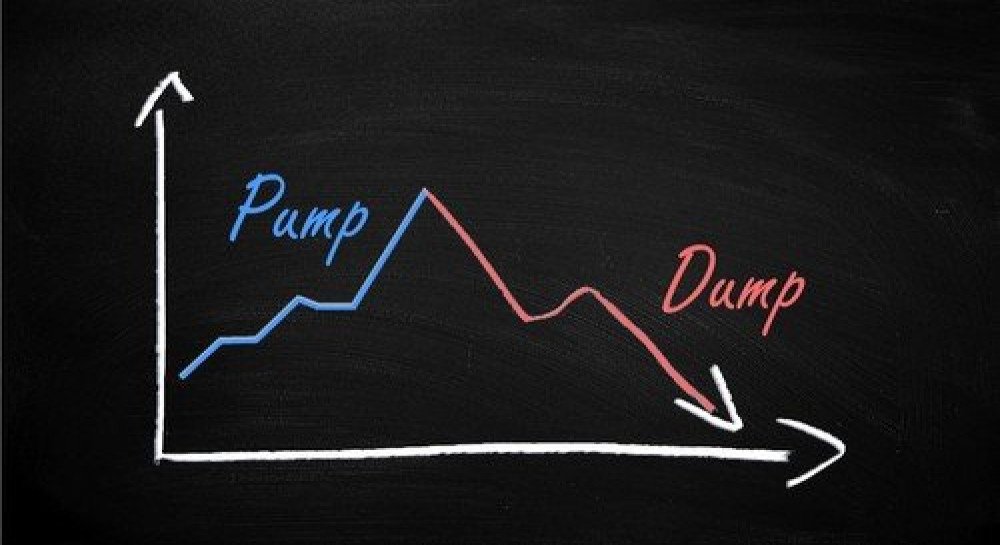 Pump
Dump